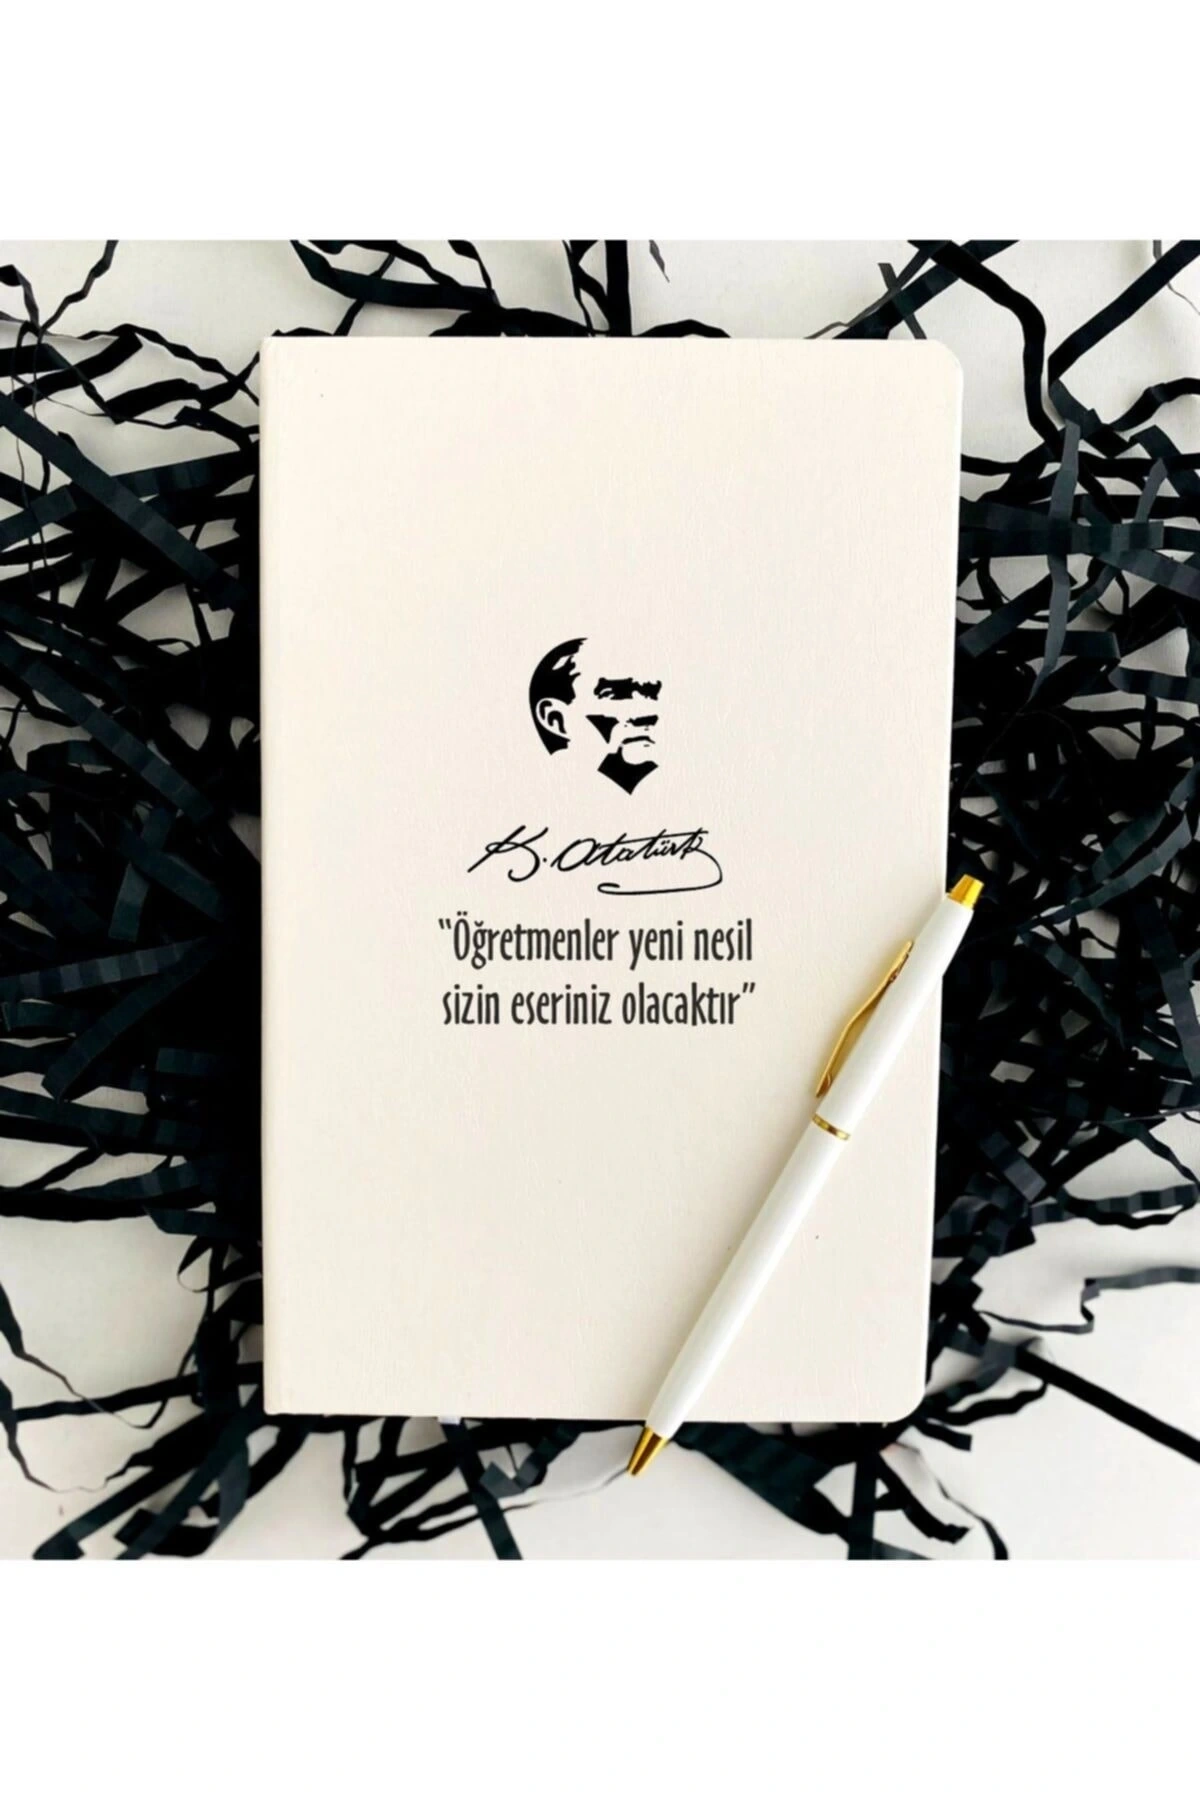 K. Atatürk
“Öğretmenler yeni nesil
sizin eseriniz olacaktır”